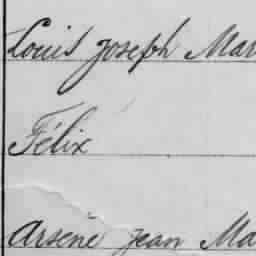 Louis Joseph Mar
Félix
Arsène Jean Ma